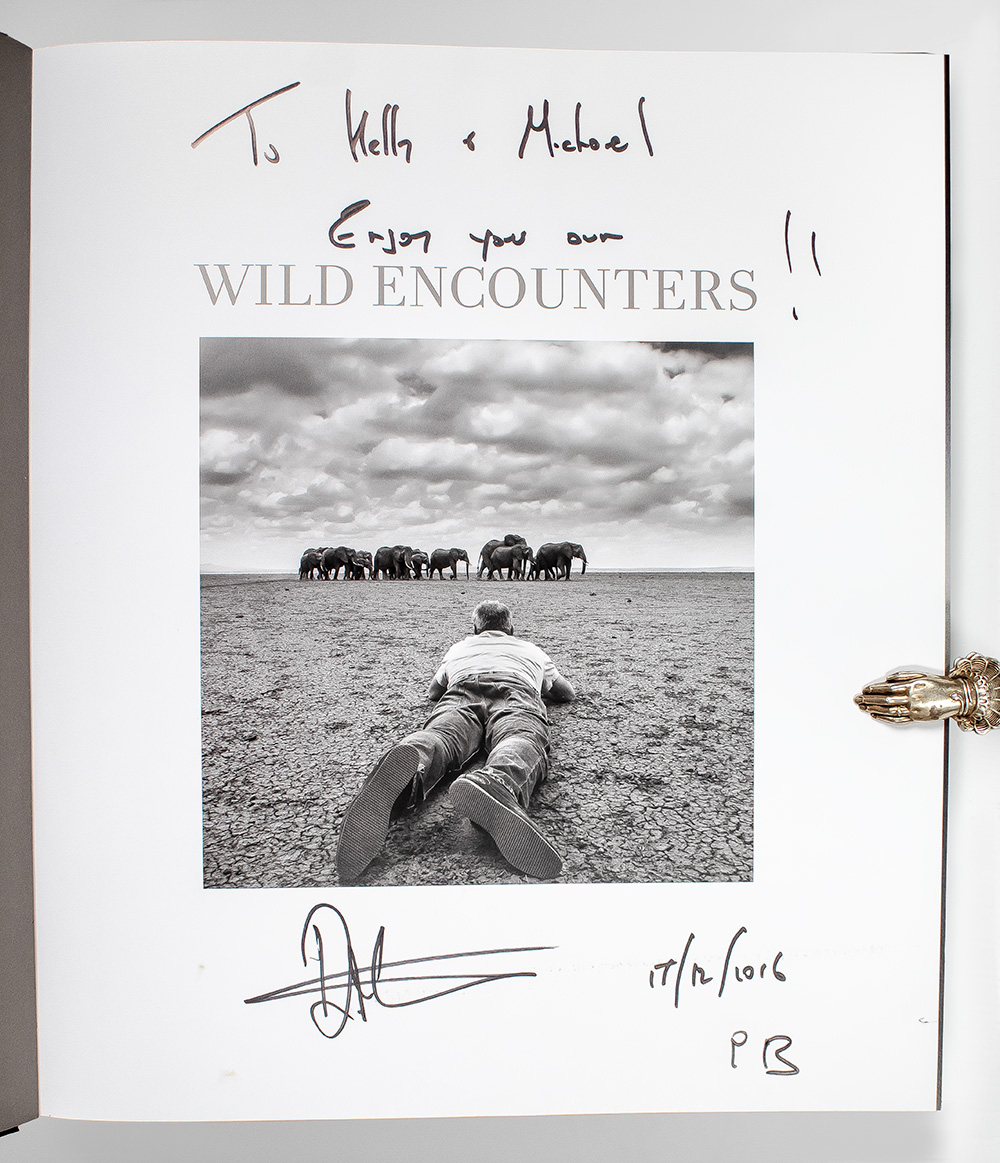 To Kelly & Michael
Enjoy you own
WILD ENCOUNTERS !!
17/12/2016
PB